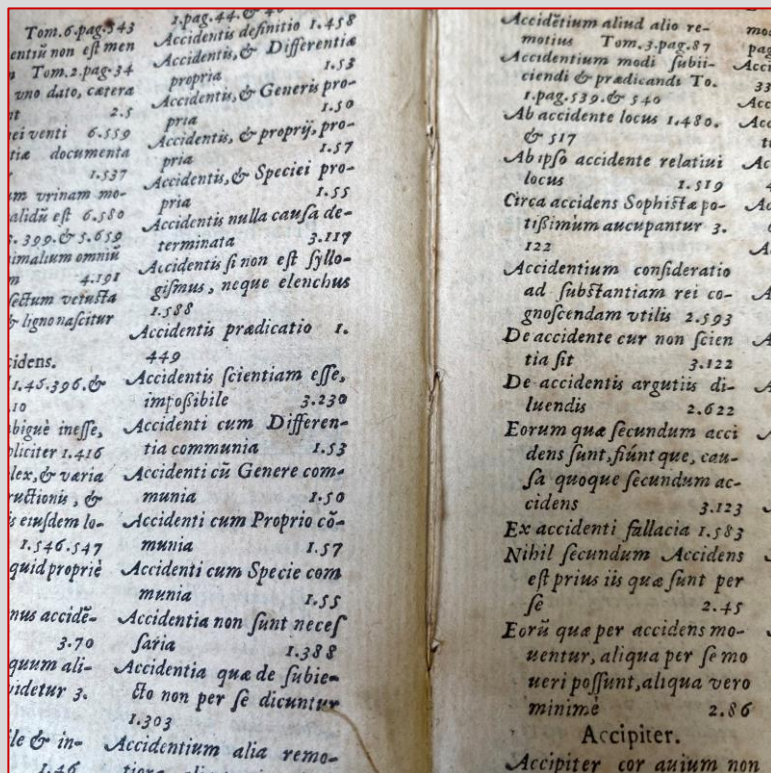 Tom.6.pag.543
entiū non est men
Tom.2.pag.34
vno dato, cætera
2.5
ei venti 6.559
tiæ documenta
1.537
um vrinam mo-
alidū est 6.580
3.399.& 5.659
nimalium omniū
4.191
sectum vetusta
& ligno nascitur
cidens.
1.46.396.&
.10
bigue inesse,
pliciter 1.416
lex, & varia
ructionis, &
is eiusdem lo-
1.546.547
quid propriè
nus accidē-
3.70
quum ali-
videtur 3.
ile & in-
1.46
1.pag.44.&
Accidentis definitio 1.458
Accidentis, & Differentiæ
propria 1.53
Accidentis, & Generis pro-
pria 1.50
Accidentis, & proprij, pro-
pria 1.57
Accidentis, & Speciei pro-
pria 1.55
Accidentis nulla causa de-
terminata 3.119
Accidentis si non est syllo-
gismus, neque elenchus
1.588
Accidentis prædicatio 1.
449
Accidentis scientiam esse,
impoßibile 3.230
Accidenti cum Differen-
tia communia 1.53
Accidenti cū Genere com-
munia 1.50
Accidenti cum Proprio cō-
munia 1.57
Accidenti cum Specie com
munia 1.55
Accidentia non sunt neces
saria 1.388
Accidentia quæ de subie-
cto non per se dicuntur
1.303
Accidentium alia remo-
Accidētium aliud alio re-
motius Tom.3.pag.87
Accidentium modi subii-
ciendi & prædicandi To.
1.pag.539.& 540
Ab accidente locus 1.480.
& 517
Ab ipso accidente relatiui
locus 1.519
Circa accidens Sophistæ po-
tißimùm aucupantur 3.
122
Accidentium consideratio
ad substantiam rei co-
gnoscendam vtilis 2.593
De accidente cur non scien
tia sit 3.122
De accidentis argutiis di-
luendis 2.622
Eorum quæ secundum acci
dens sunt, fiúntque, cau-
sa quoque secundum ac-
cidens 3.123
Ex accidenti fallacia 1.583
Nihil secundum Accidens
est prius iis quæ sunt per
se 2.45
Eorū quæ per accidens mo-
uentur, aliqua per se mo
ueri possunt, aliqua vero
minimè 2.86
Accipiter.
Accipiter cor auium non